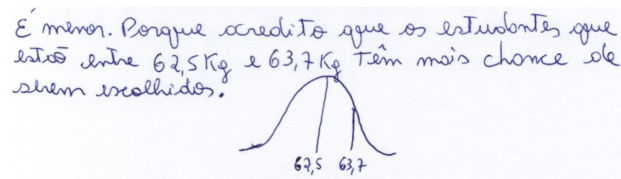 É menor. Porque acredito que os estudantes que
estão entre 62,5 Kg e 63,7 Kg têm mais chance de
serem escolhidos.
62,5 63,7